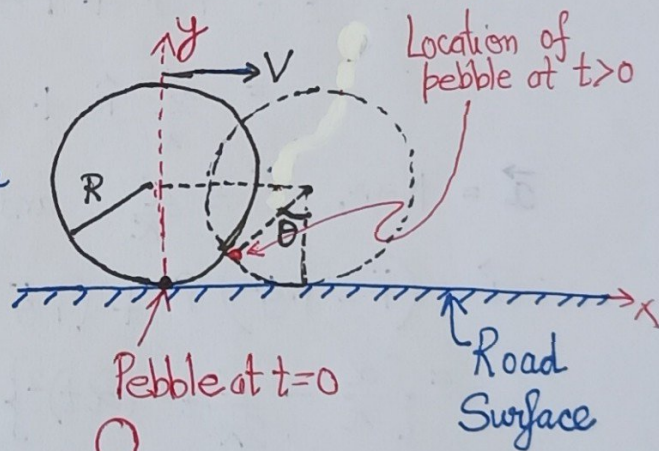 y
V
Location of
pebble at t>0
R
θ
x
Pebble at t=0
Road
Surface